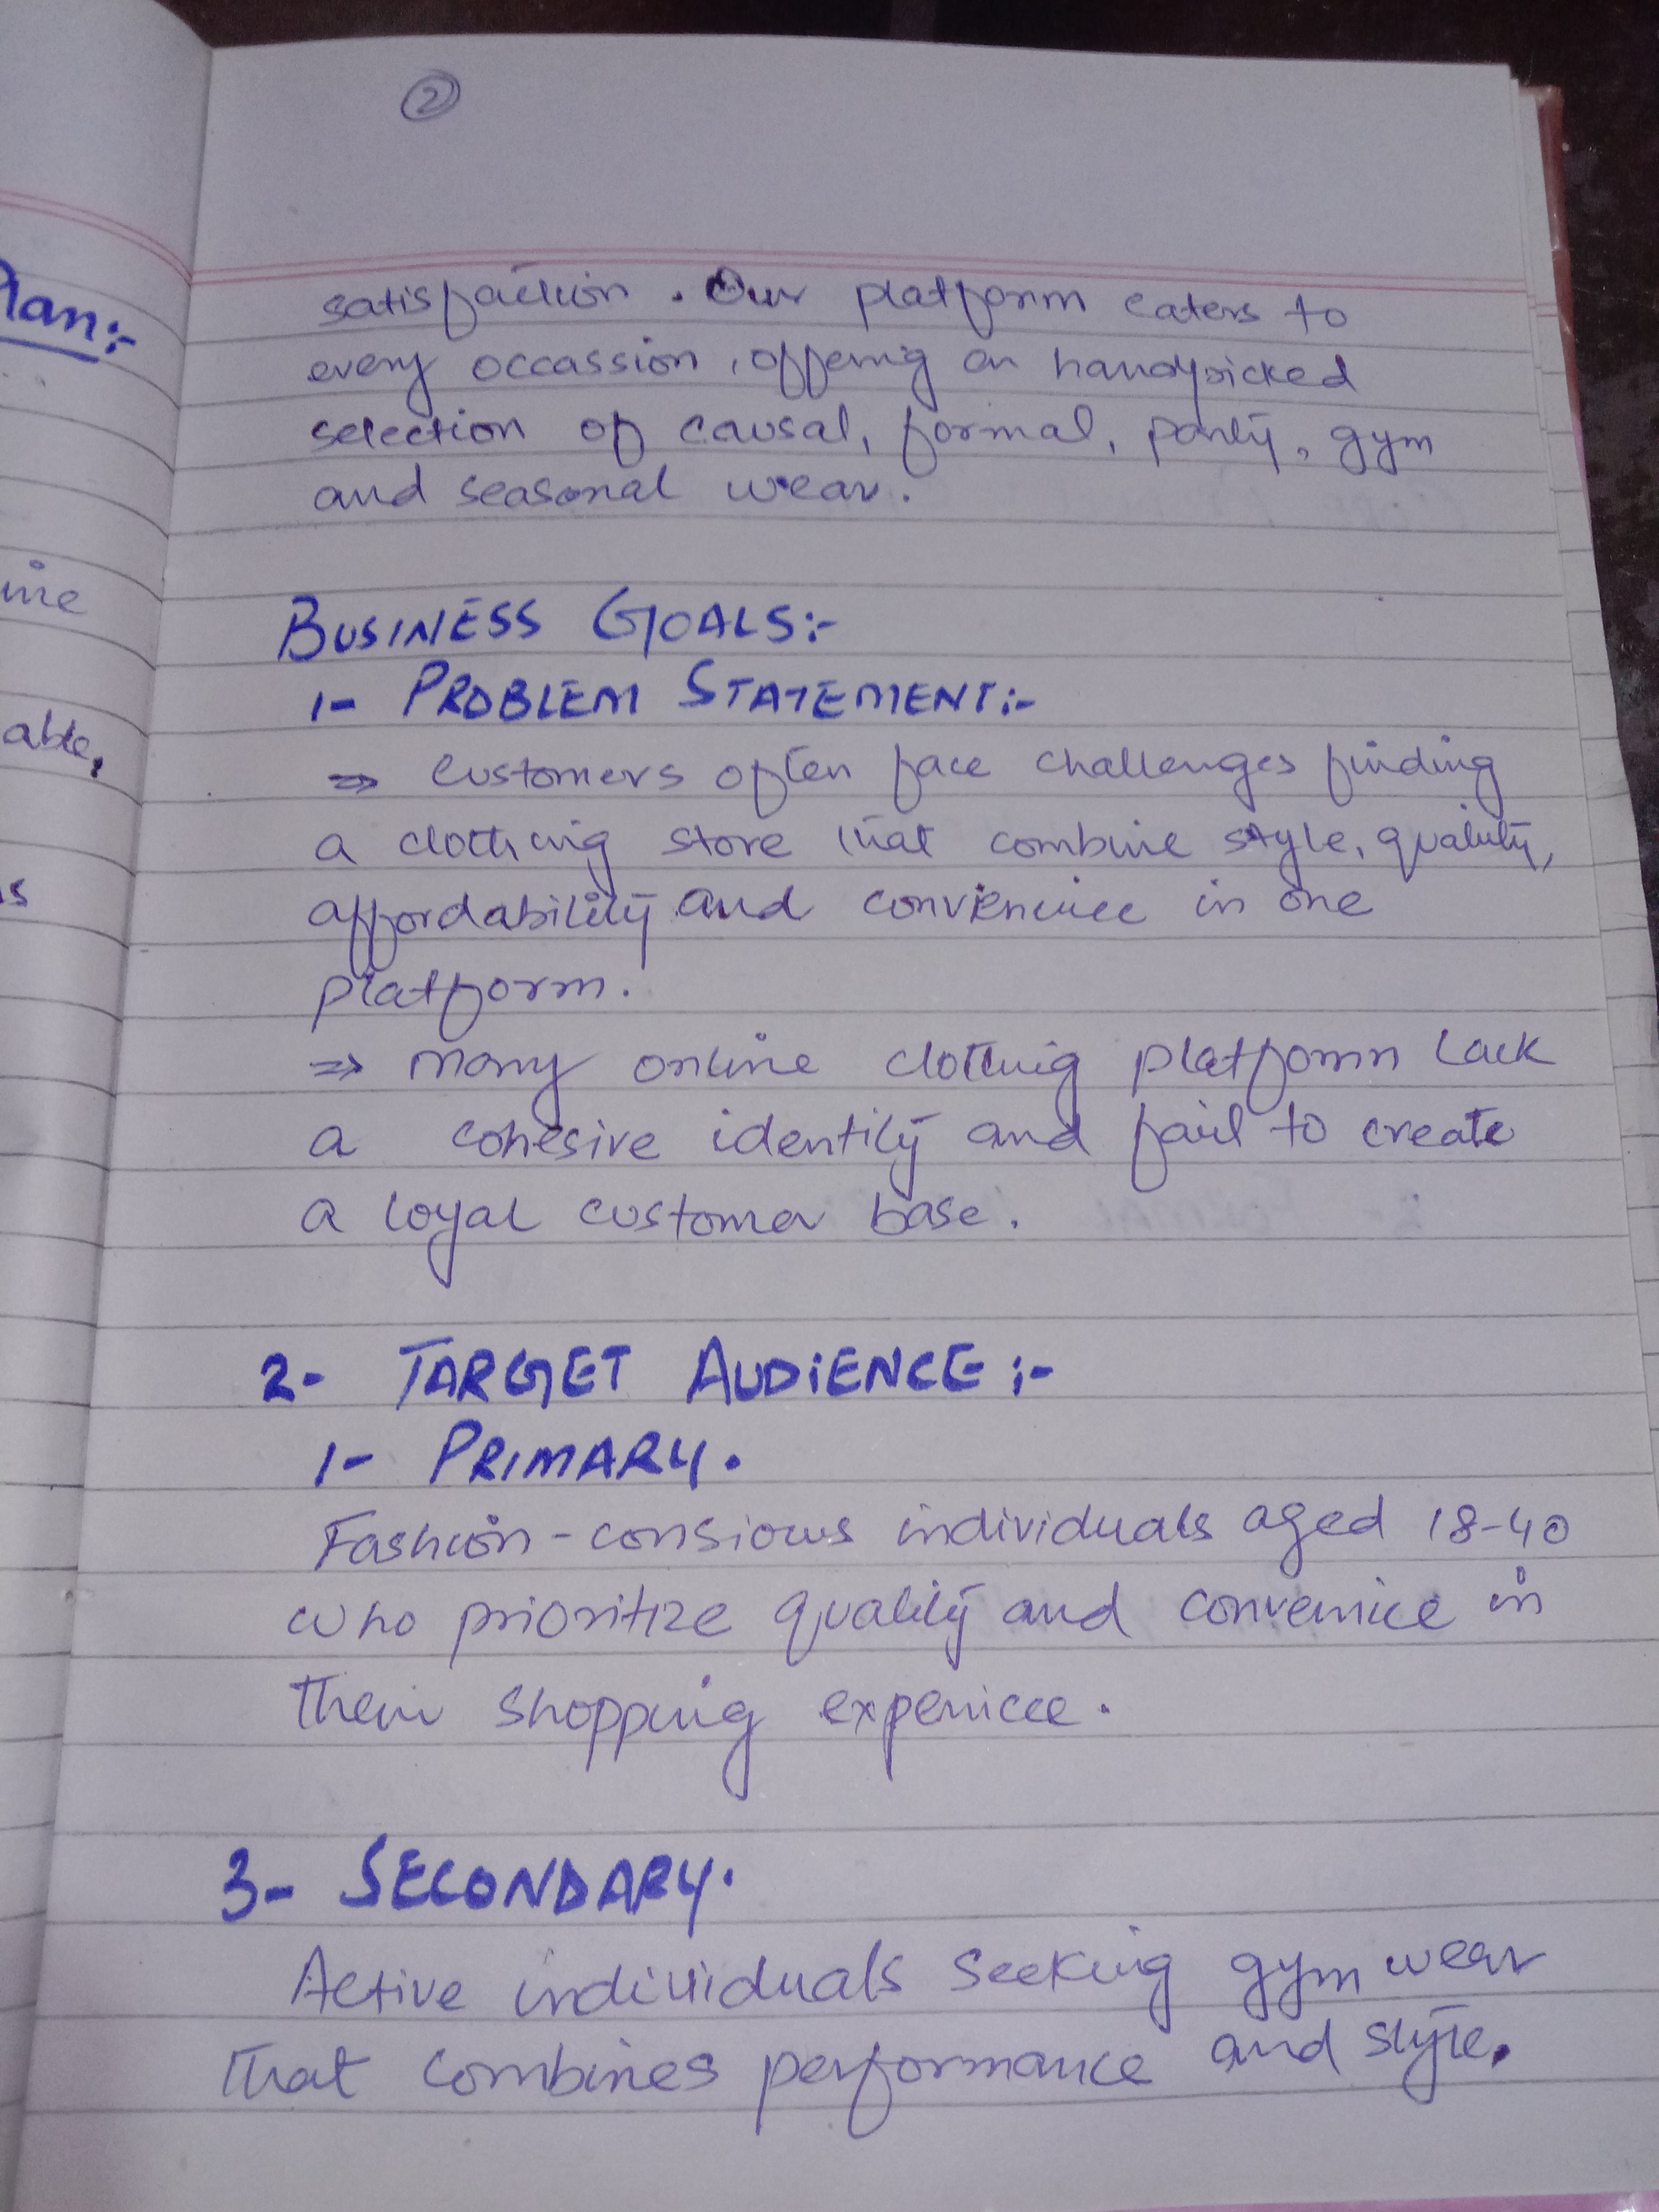 ②
satisfaction. Our platform caters to
every occassion, offering an handpicked
selection of causal, formal, party, gym
and seasonal wear.
BUSINESS GOALS:-
1- PROBLEM STATEMENT:-
⇒ Customers often face challenges finding
a clothing store that combine style, quality,
affordability and convienience in one
platform.
⇒ Many online clothing platform lack
a cohesive identity and fail to create
a loyal customer base.
2- TARGET AUDIENCE:-
1- PRIMARY.
Fashion-consious individuals aged 18-40
who prioritize quality and convenice in
their shopping experiece.
3- SECONDARY.
Active individuals seeking gym wear
that combines performance and style.
Plan:-
able,